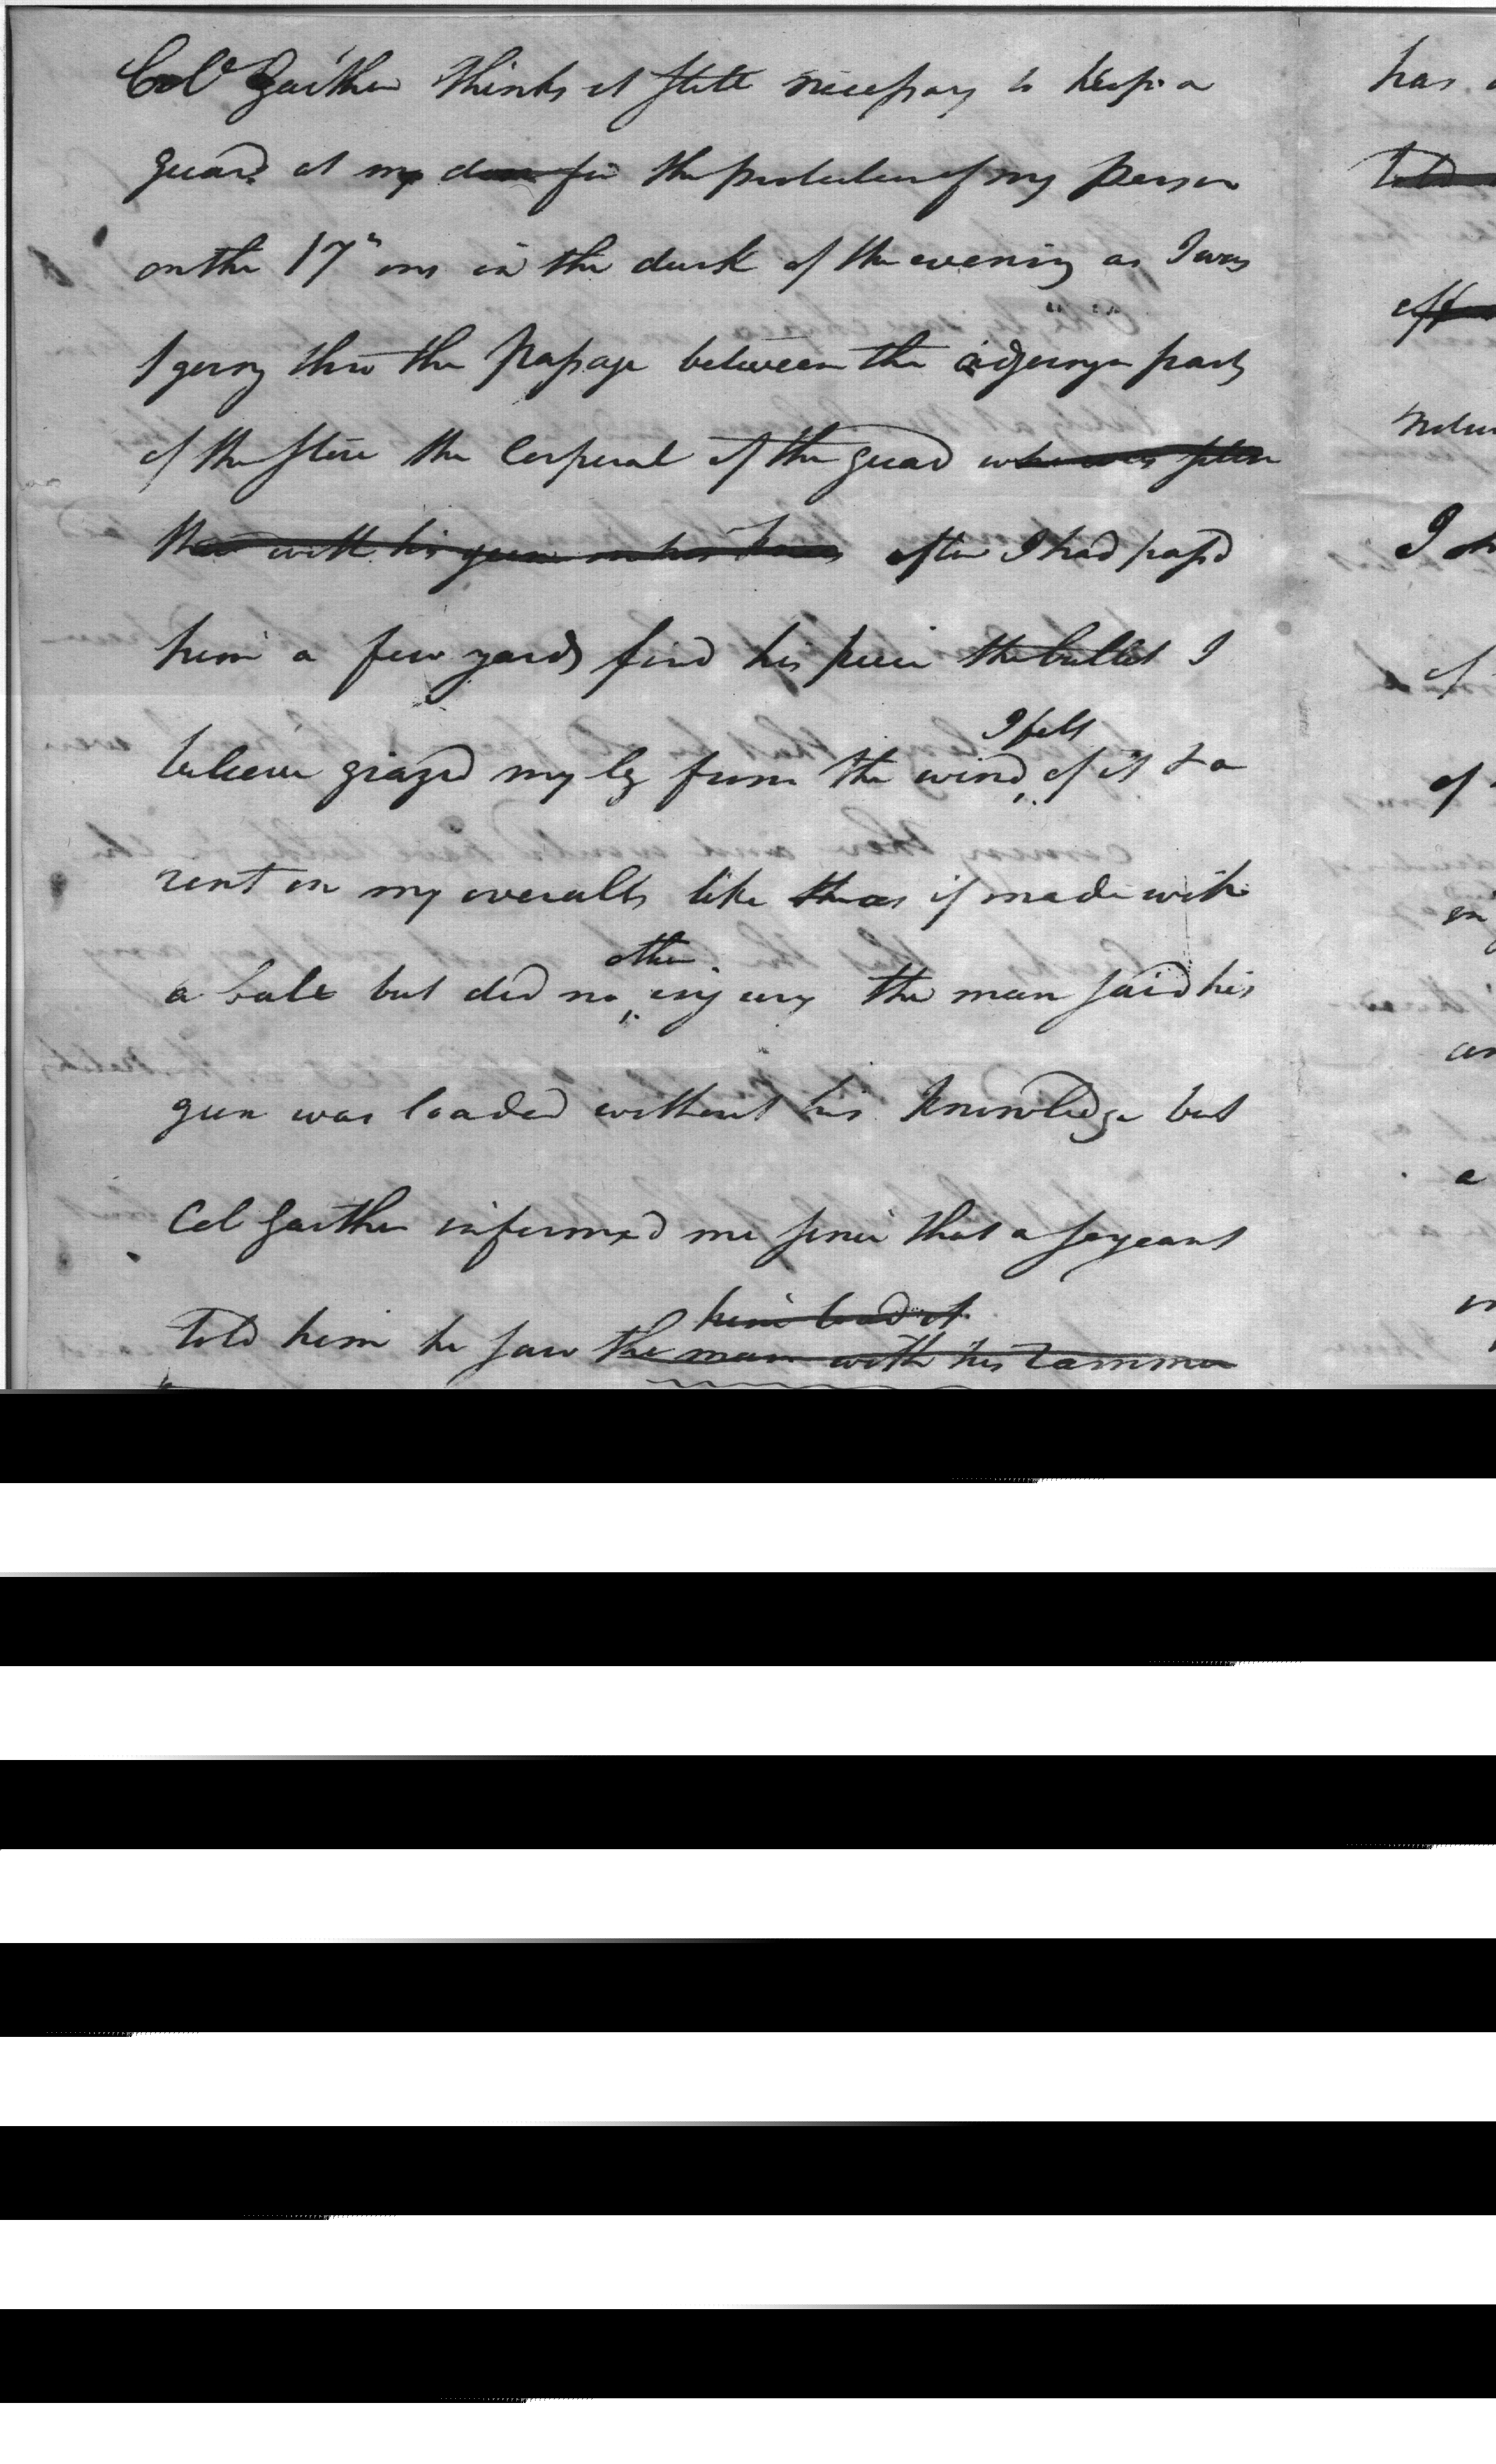 Colo Gaither thinks it still necessary to keep a
guard at my door for the protection of my person
on the 17th ins in the dusk of the evening as I was
going thro the passage between the adjoyng parts
of the store the Corporal of the guard who was
with his gun on his knees after I had passd
him a few yards fired his piece the bullet I
I felt
believe grazed my leg from the wind of it & a
rent in my overalls like as if made with
other
a ball but did no injury the man said his
gun was loaded without his knowledge but
Col Gaither informed me since that a serjeant
him load it
told him he saw the man with his rammer
has
told
I
of
of
in
a